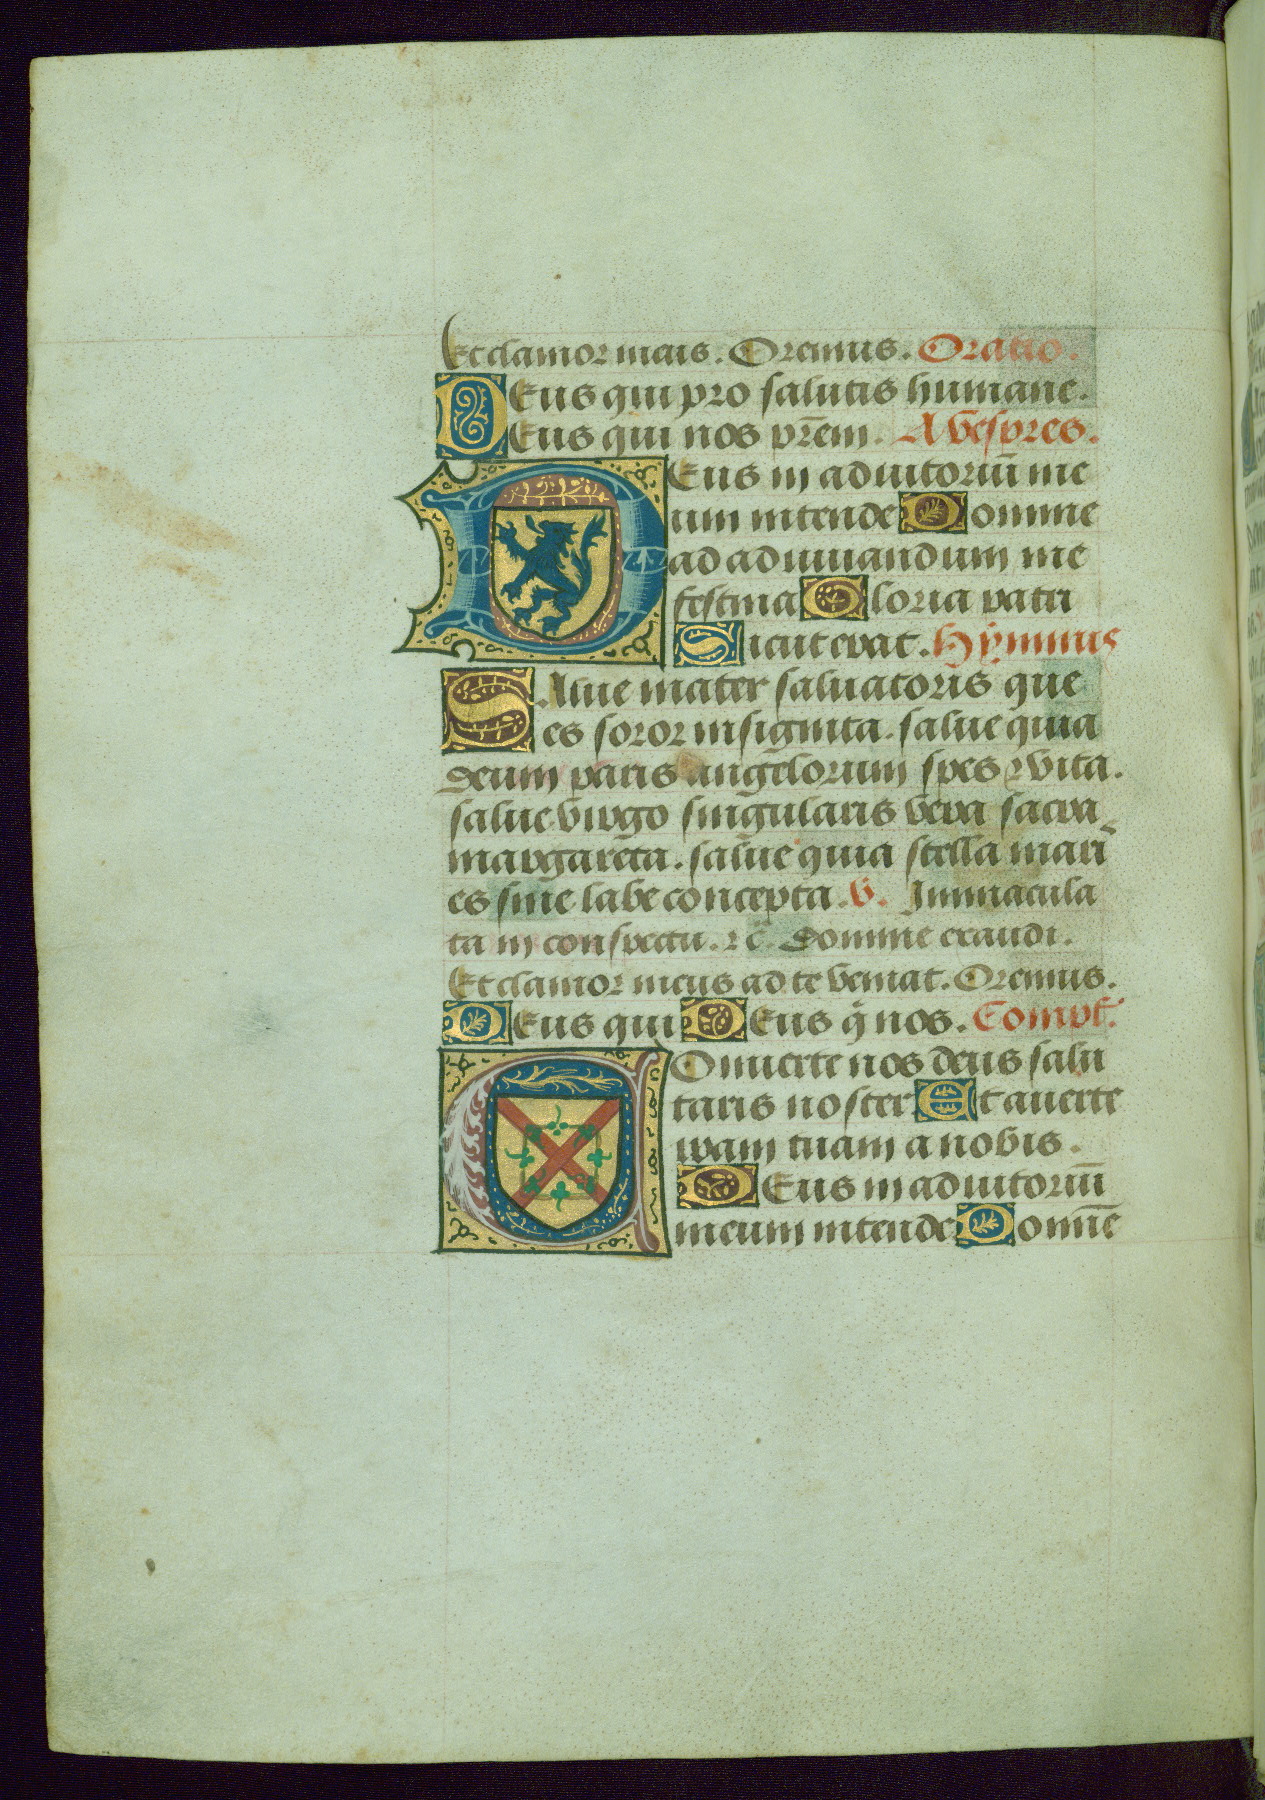 Et clamor meus. Oremus. Oratio.
DEus qui pro salutis humane.
Eus qui nos prēm. A vespres.
DEus in adiutoriū me
um intende Domine
ad adiuuandum me
festina Gloria patri
Sicut erat. Hÿmnus
SAlue mater saluatoris que
es soror insignita. salue quia
deum paris angelorum spes ⁊ vita.
salue virgo singularis vera sacra
margareta. salue quia stella mari
es sine labe concepta. V. Immacula
ta in conspectu. ⁊ c̄. Domine exaudi.
Et clamor meus ad te veniat. Oremus.
DEus qui DEus q̄ nos. Compl'.
COnuerte nos deus salu
taris noster Et auerte
iram tuam a nobis.
DEus in adiutoriū
meum intende Domīe